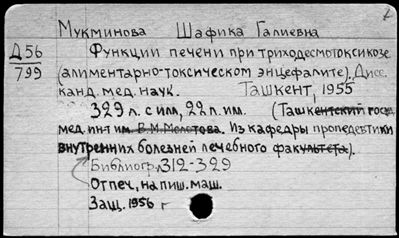 Мукминова Шафика Галиевна
Д56
799
Функции печени при триходесмотоксикозе
(алиментарно-токсическом энцефалите). Дисс.
канд. мед. наук. Ташкент, 1955
329 л. с илл, 22 л. им. (Ташкентский госуд.
мед. ин-т им. В.М. Молотова. Из кафедры пропедевтики
внутренних болезней лечебного факультета).
Библиогр. 312-329
Отпеч. на пиш. маш.
Защ. 1956 г